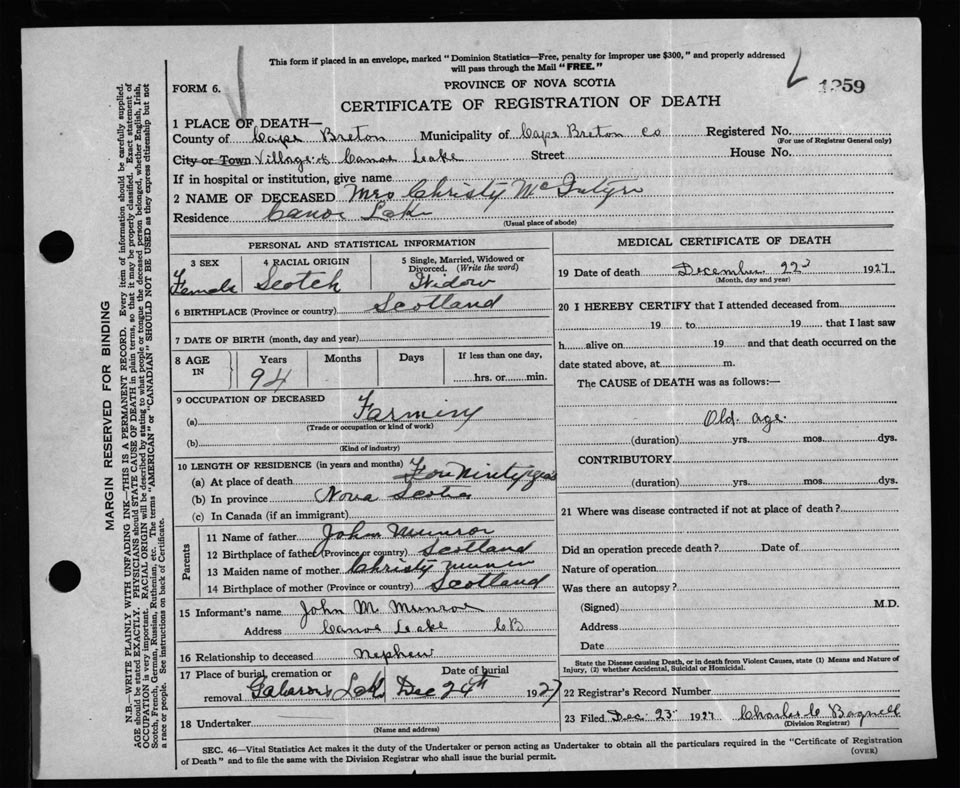 This form if placed in an envelope, marked "Dominion Statistics—Free, penalty for improper use $300," and properly addressed
will pass through the Mail "FREE."
FORM 6.
PROVINCE OF NOVA SCOTIA
1259
CERTIFICATE OF REGISTRATION OF DEATH
1 PLACE OF DEATH—
County of Cape Breton Municipality of Cape Breton Co Registered No.
(For use of Registrar General only)
City or Town Village of Canoe Lake Street House No.
If in hospital or institution, give name
2 NAME OF DECEASED Mrs Christy McIntyre
Residence Canoe Lake
(Usual place of abode)
PERSONAL AND STATISTICAL INFORMATION
3 SEX
Female
4 RACIAL ORIGIN
Scotch
5 Single, Married, Widowed or
Divorced. (Write the word)
Widow
6 BIRTHPLACE (Province or country) Scotland
7 DATE OF BIRTH (month, day and year)
8 AGE
IN
Years
94
Months
Days
If less than one day,
hrs. or min.
9 OCCUPATION OF DECEASED
(a) Farming
(Trade or occupation or kind of work)
(b)
(Kind of industry)
10 LENGTH OF RESIDENCE (in years and months)
(a) At place of death Ninety years
(b) In province Nova Scotia
(c) In Canada (if an immigrant)
Parents
11 Name of father John Munroe
12 Birthplace of father (Province or country) Scotland
13 Maiden name of mother Christy
14 Birthplace of mother (Province or country) Scotland
15 Informant's name John M. Munroe
Address Canoe Lake CB
16 Relationship to deceased nephew
17 Place of burial, cremation or
removal Lake
Date of burial
Dec 24th 1927
18 Undertaker
(Name and address)
MEDICAL CERTIFICATE OF DEATH
19 Date of death December 22 1927
(Month, day and year)
20 I HEREBY CERTIFY that I attended deceased from
19 to 19 that I last saw
h alive on 19 and that death occurred on the
date stated above, at m.
The CAUSE of DEATH was as follows:—
Old age.
(duration) yrs. mos. dys.
CONTRIBUTORY
(duration) yrs. mos. dys.
21 Where was disease contracted if not at place of death?
Did an operation precede death? Date of
Nature of operation
Was there an autopsy?
(Signed) M.D.
Address
Date
State the Disease causing Death, or in death from Violent Causes, state (1) Means and Nature of
Injury, (2) whether Accidental, Suicidal or Homicidal.
22 Registrar's Record Number
23 Filed Dec. 23 1927 Charles Bagnell
(Division Registrar)
SEC. 46—Vital Statistics Act makes it the duty of the Undertaker or person acting as Undertaker to obtain all the particulars required in the "Certificate of Registration
of Death" and to file the same with the Division Registrar who shall issue the burial permit.
(OVER)
MARGIN RESERVED FOR BINDING
N.B.—WRITE PLAINLY WITH UNFADING INK—THIS IS A PERMANENT RECORD. Every item of information should be carefully supplied.
AGE should be stated EXACTLY. PHYSICIANS should STATE CAUSE OF DEATH in plain terms, so that it may be properly classified. Exact statement of
OCCUPATION is very important. RACIAL ORIGIN will be described by stating to what people or tongue the deceased person belonged, whether English, Irish,
Scotch, French, German, Russian, Ruthenian, etc. The terms "AMERICAN" or "CANADIAN" SHOULD NOT BE USED as they express citizenship but not
a race or people. See instructions on back of Certificate.